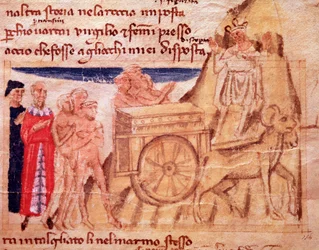 naltra storia nelaroccia inposta
perchio varcai virgilio & femi presso
accio chefosse agliochi miei disposta
ra intalgliato li nelmarmo stesso